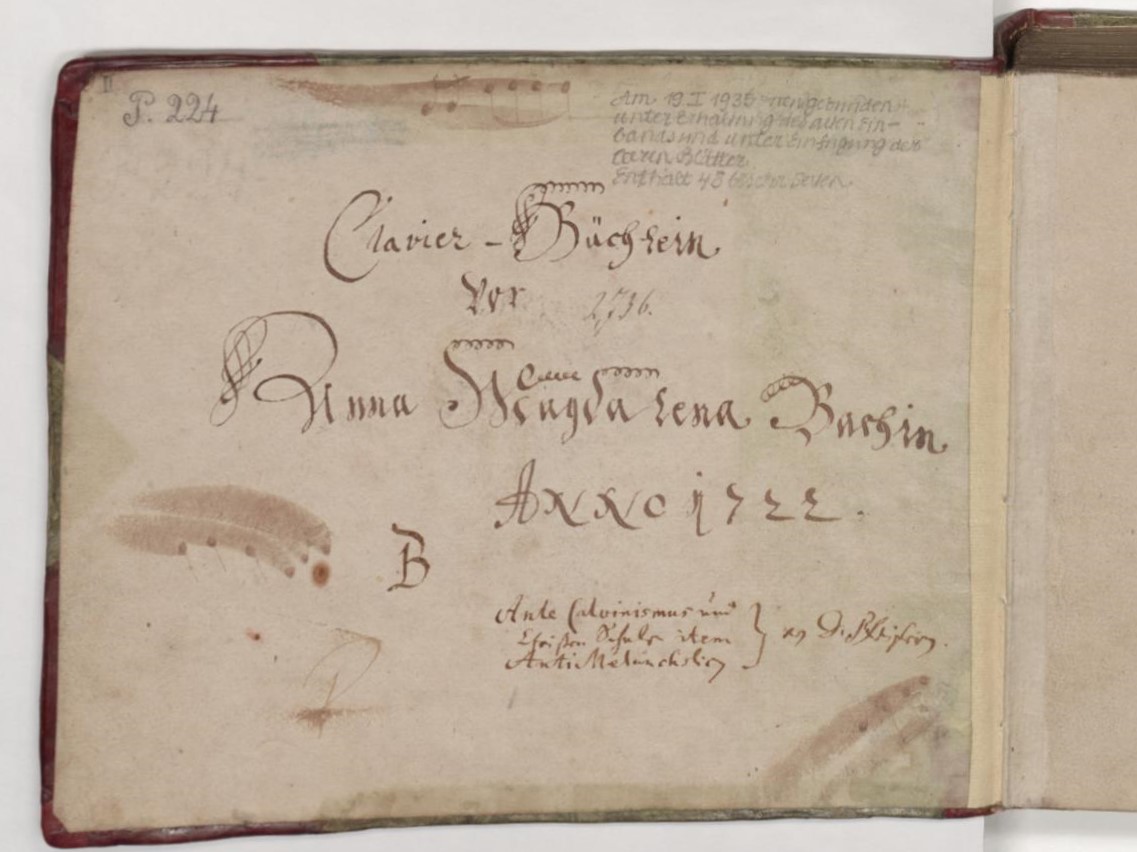 II
P. 224
Am 19 I 1935 neu gebunden
unter Erhaltung des alten Ein-
bands und unter Einfügung der
leeren Blätter.
Enthält 48 Seiten.
Clavier-Büchlein
vor
Anna Magdalena Bachin
ANNO 1722.
B
Ante Calvinismus und
Christen Schule item
AntiMelancholicy
D. Pfeifern.